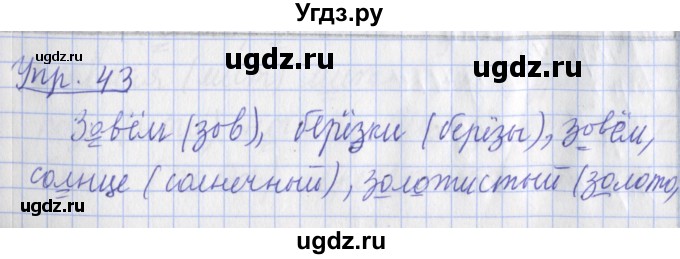 Угдз.ру
ugdz.ru ugdz.ru
Упр. 43
ugdz.ru
Зовём (зов), берёзки (берёзы), зовём,
солнце (солнечный), золотистый (золото,
ugdz.ru ugdz.ru
ugdz.ru